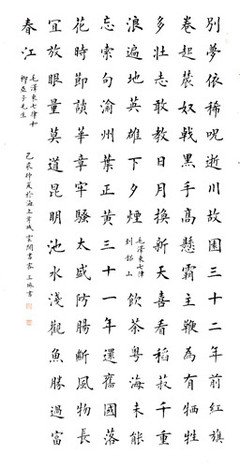 別夢依稀呪逝川故園三十二年前紅旗
卷起農奴戟黑手高懸霸主鞭為有犧牲
多壯志敢教日月換新天喜看稻菽千重
浪遍地英雄下夕煙
毛澤東七律
到韶山
飲茶粵海未能
忘索句渝州葉正黃三十一年還舊國落
花時節讀華章牢騷太盛防腸斷風物長
宜放眼量莫道昆明池水淺觀魚勝過富
春江
毛澤東七律和
柳亞子先生
仲夏於海上 雲間書 書